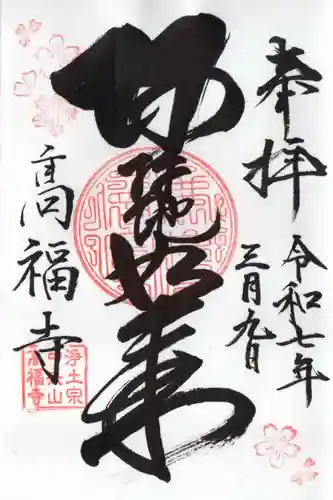 奉拝
令和七年
三月九日
如来
髙福寺
浄土宗
山
髙福寺